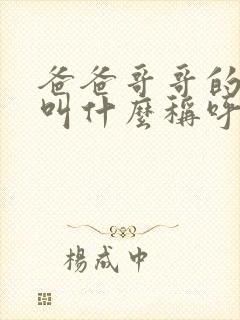 爸爸哥哥的
叫什麼稱呼
楊成中